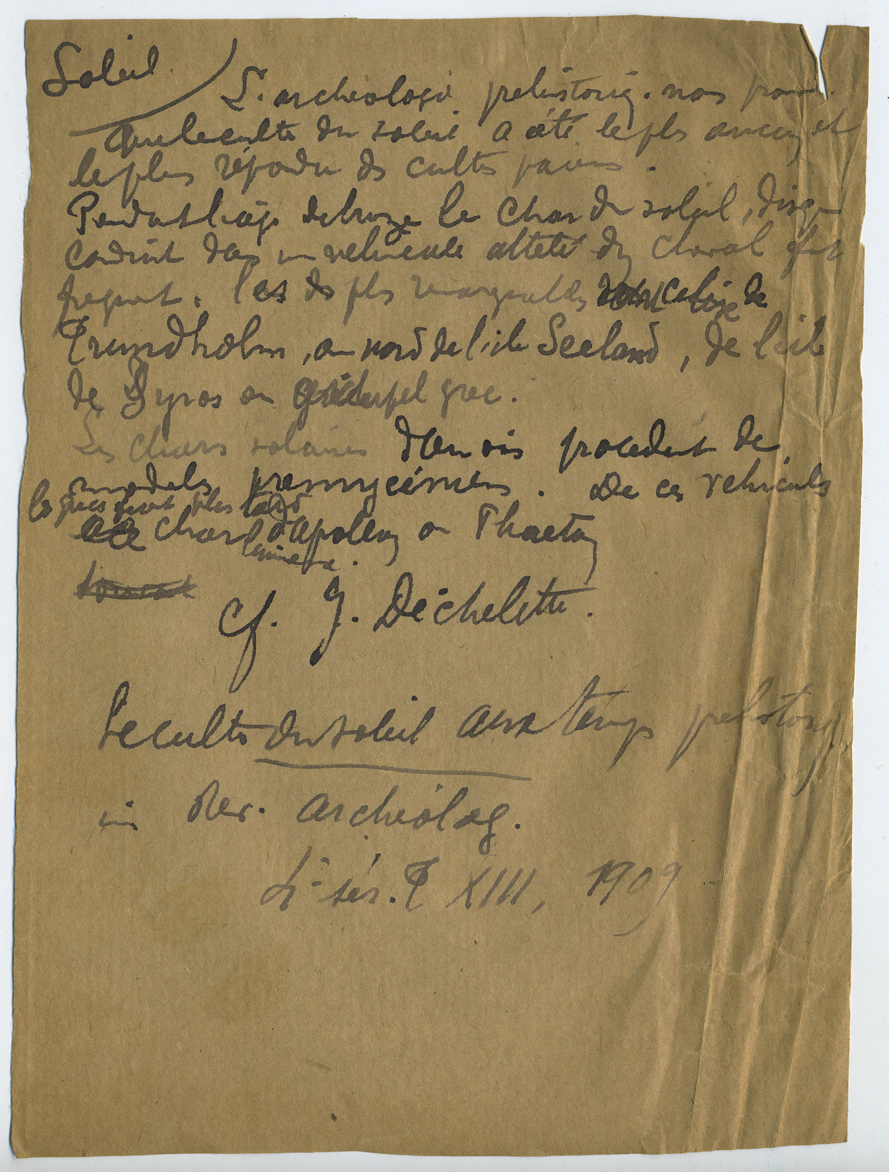 Soleil
L'archéologie prehistoriq. nous prouve
que le culte du soleil a été le pls ancien et
le plus répandu ds cultes païens.
Pendant l'âge debronze le char du soleil, disque
conduit dans un vehicule attelé d'un cheval est
frequent. Les ds pls remarquables celui de
Trundholm, au nord de l'ile Seeland, de l'ile
de Syros en grec.
Les chars solaires danois procedent de
modeles premycéniens. De ces vehicules
le grecs plus tard
char d'Apollon ou Phaeton
lumiere.
cf. J. Déchelette.
Le culte du soleil aux temps prehistoriq.
in Rev. archéolog.
4e sér. T XIII, 1909